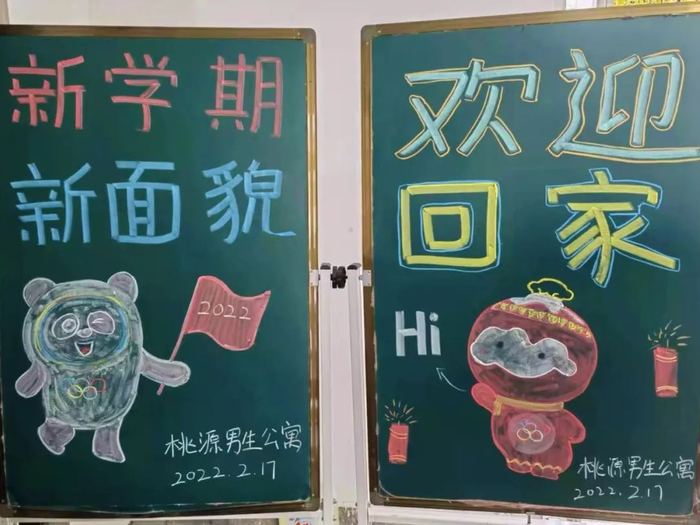 新学期
新面貌
2022
桃源男生公寓
2022.2.17
欢迎
回家
Hi
桃源男生公寓
2022.2.17